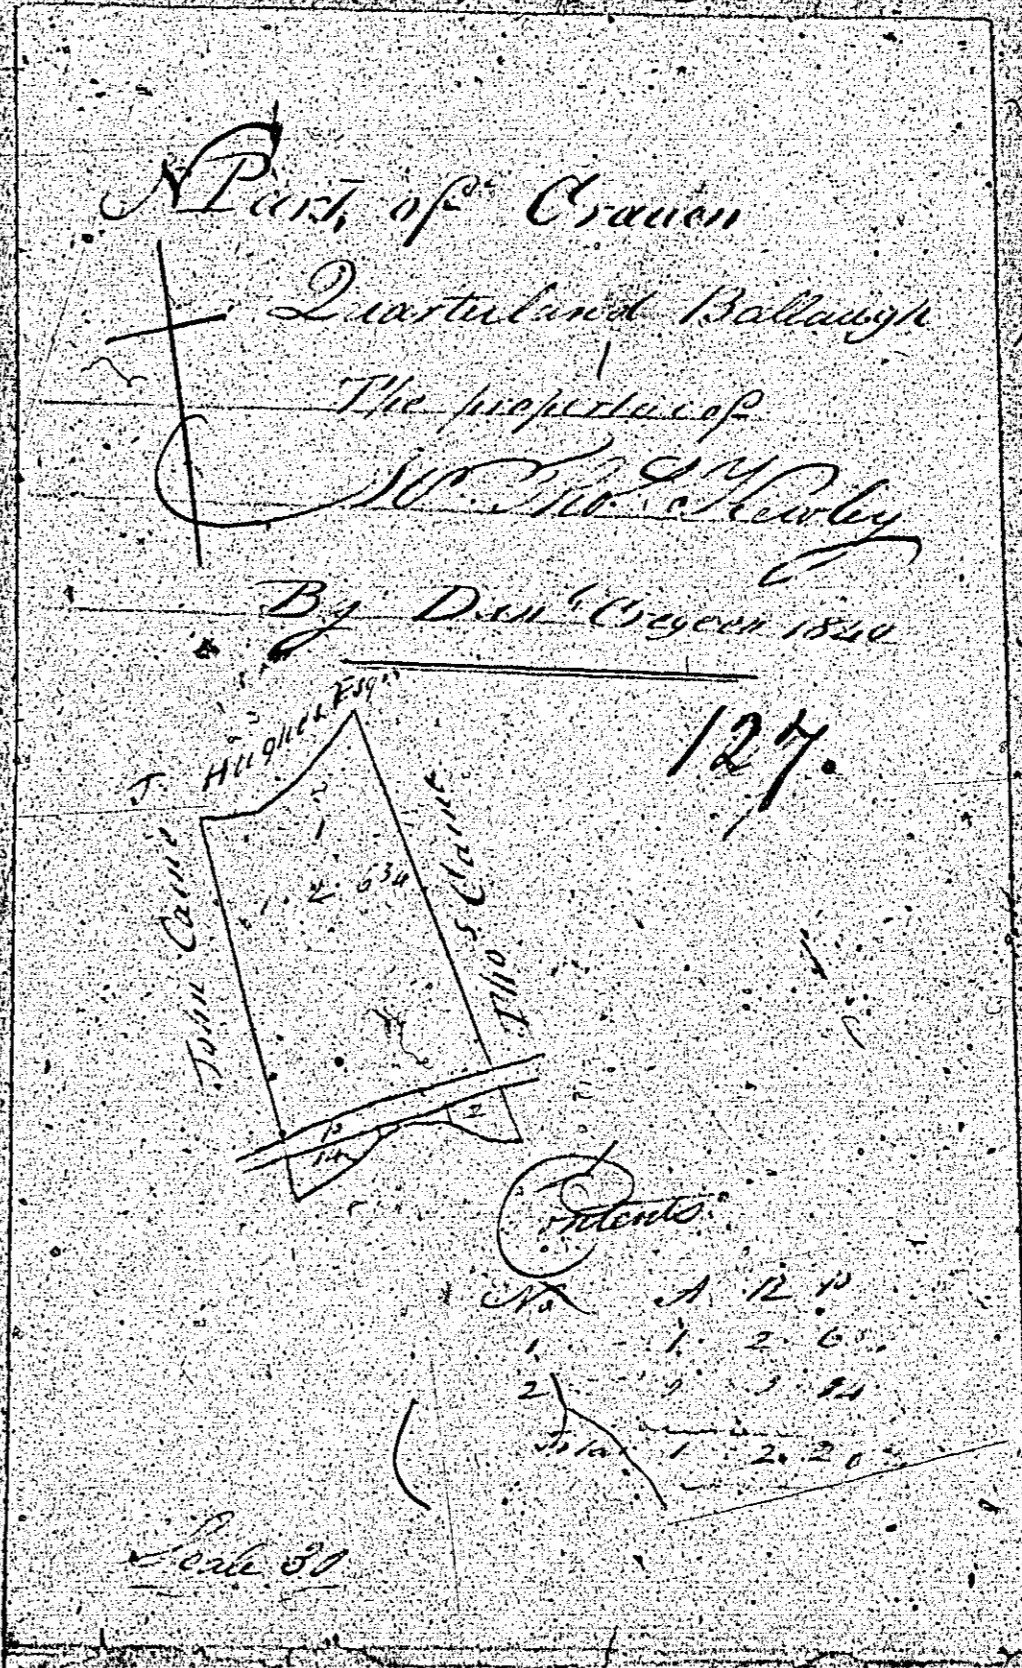 N
Part of Craven
Quarterland Ballaugh
The property of
Mr. Thos. Kewley
By Danl. Cregeen 1840
127.
J. Hughes Esqr
John Caine
Thos Caine
1
1. 2. 6 3/4
P
14
2
Contents
No A R P
1 1. 2. 6
2 14
Total 1 2. 20
Scale 30